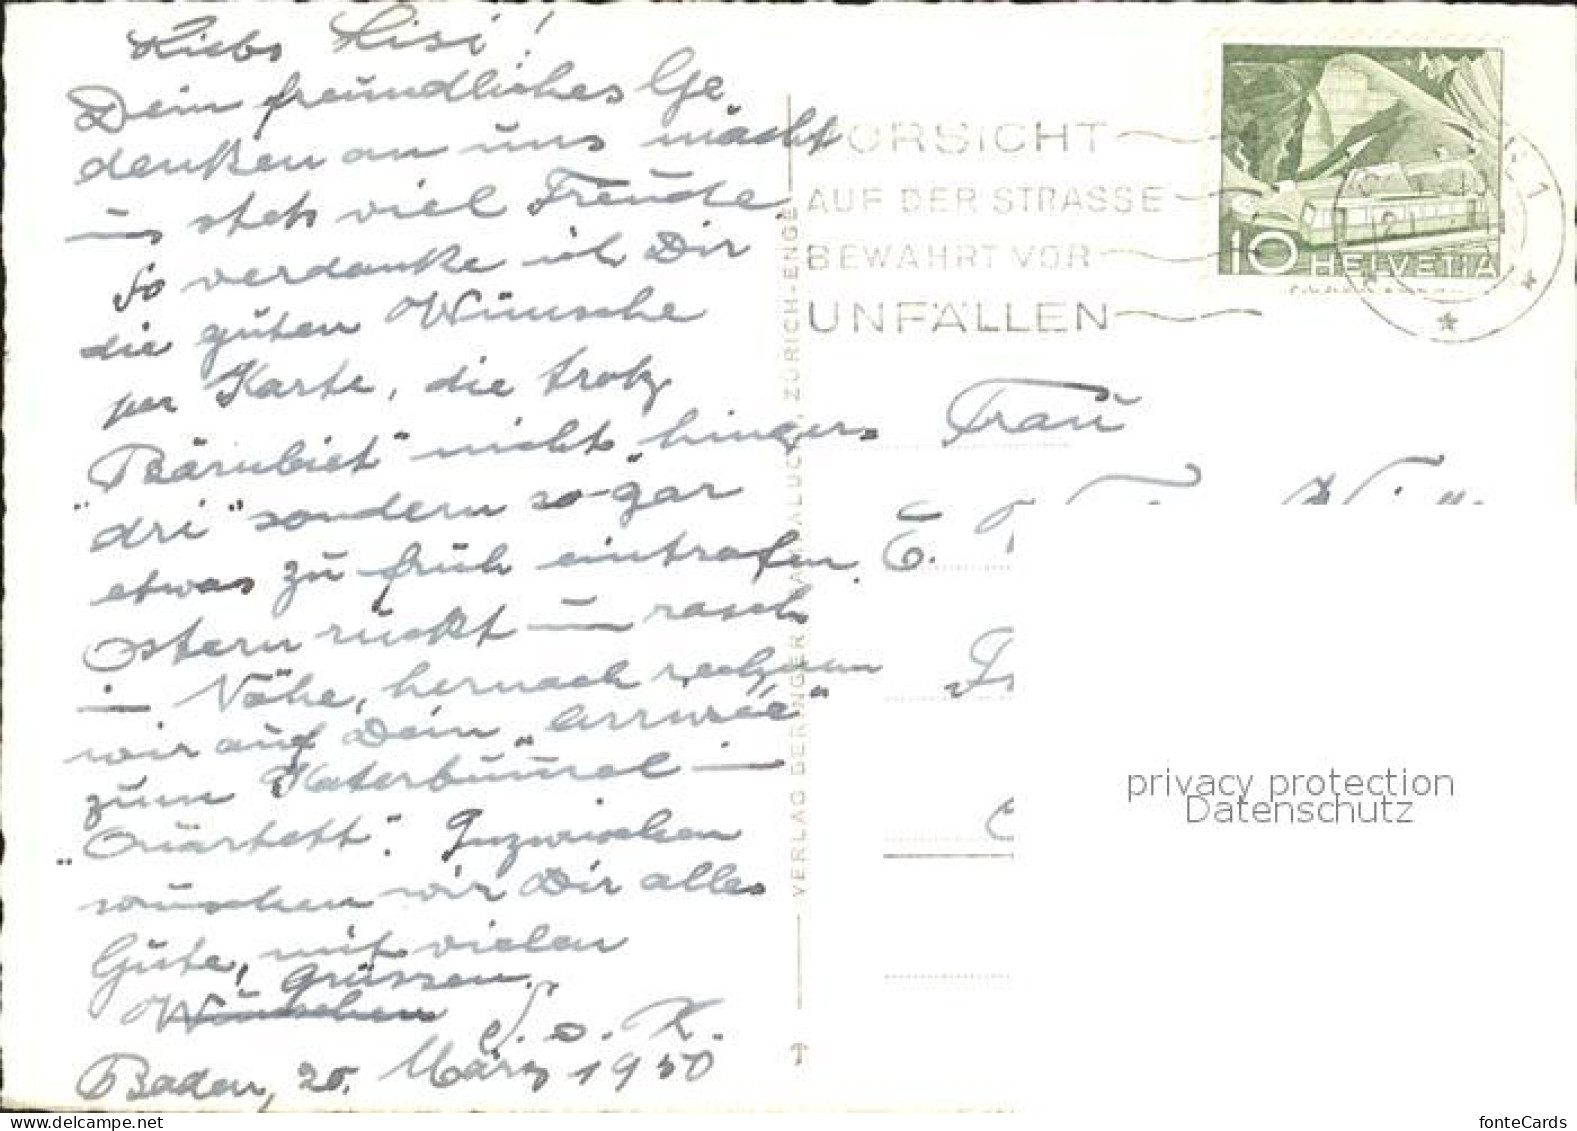 Liebs Lisi!
Dein freundliches Ge
denken an uns macht
uns stets viel Freude
So verdanke ich Dir
die guten Wünsche
per Karte, die trotz
"Bärnbiet" nicht "hinger-
dri" sondern so-gar
etwas zu früh eintrafen.
Ostern rückt in rasch
in Nähe, hernach rechnen
wir auf Dein "Arrivée"
zum Katerbummel in
"Quartett". Inzwischen
wünschen wir Dir alles
Gute, mit vielen
Grüssen
Wünschen
S. o. K.
Baden, 20. März 1950
VERLAG BERINGER ZÜRICH-ENGE
VORSICHT
AUF DER STRASSE
BEWAHRT VOR
UNFÄLLEN
10 HELVETIA
Frau
E.
privacy protection
Datenschutz
fonteCards